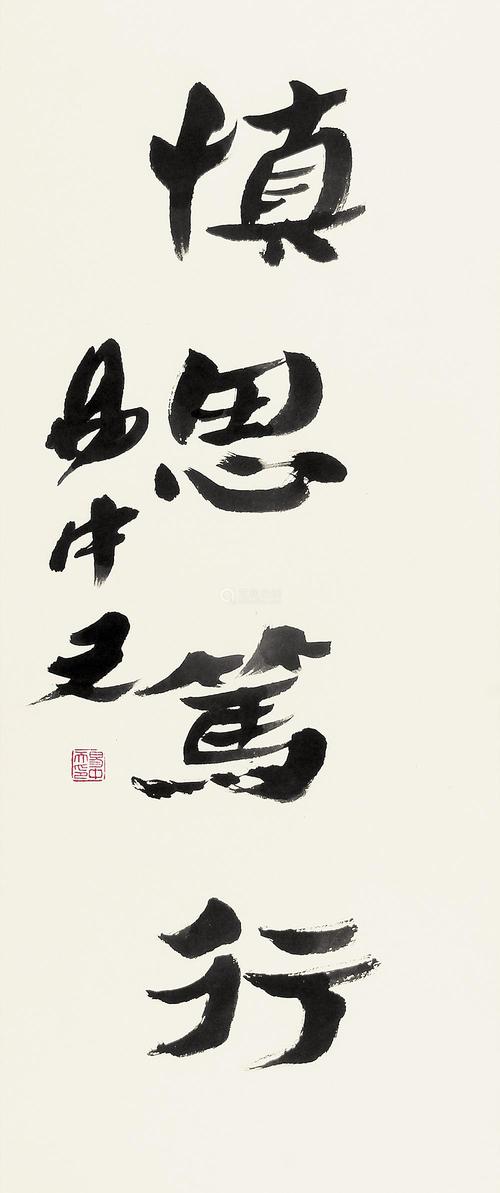 慎思篤行
易中天
易中天印